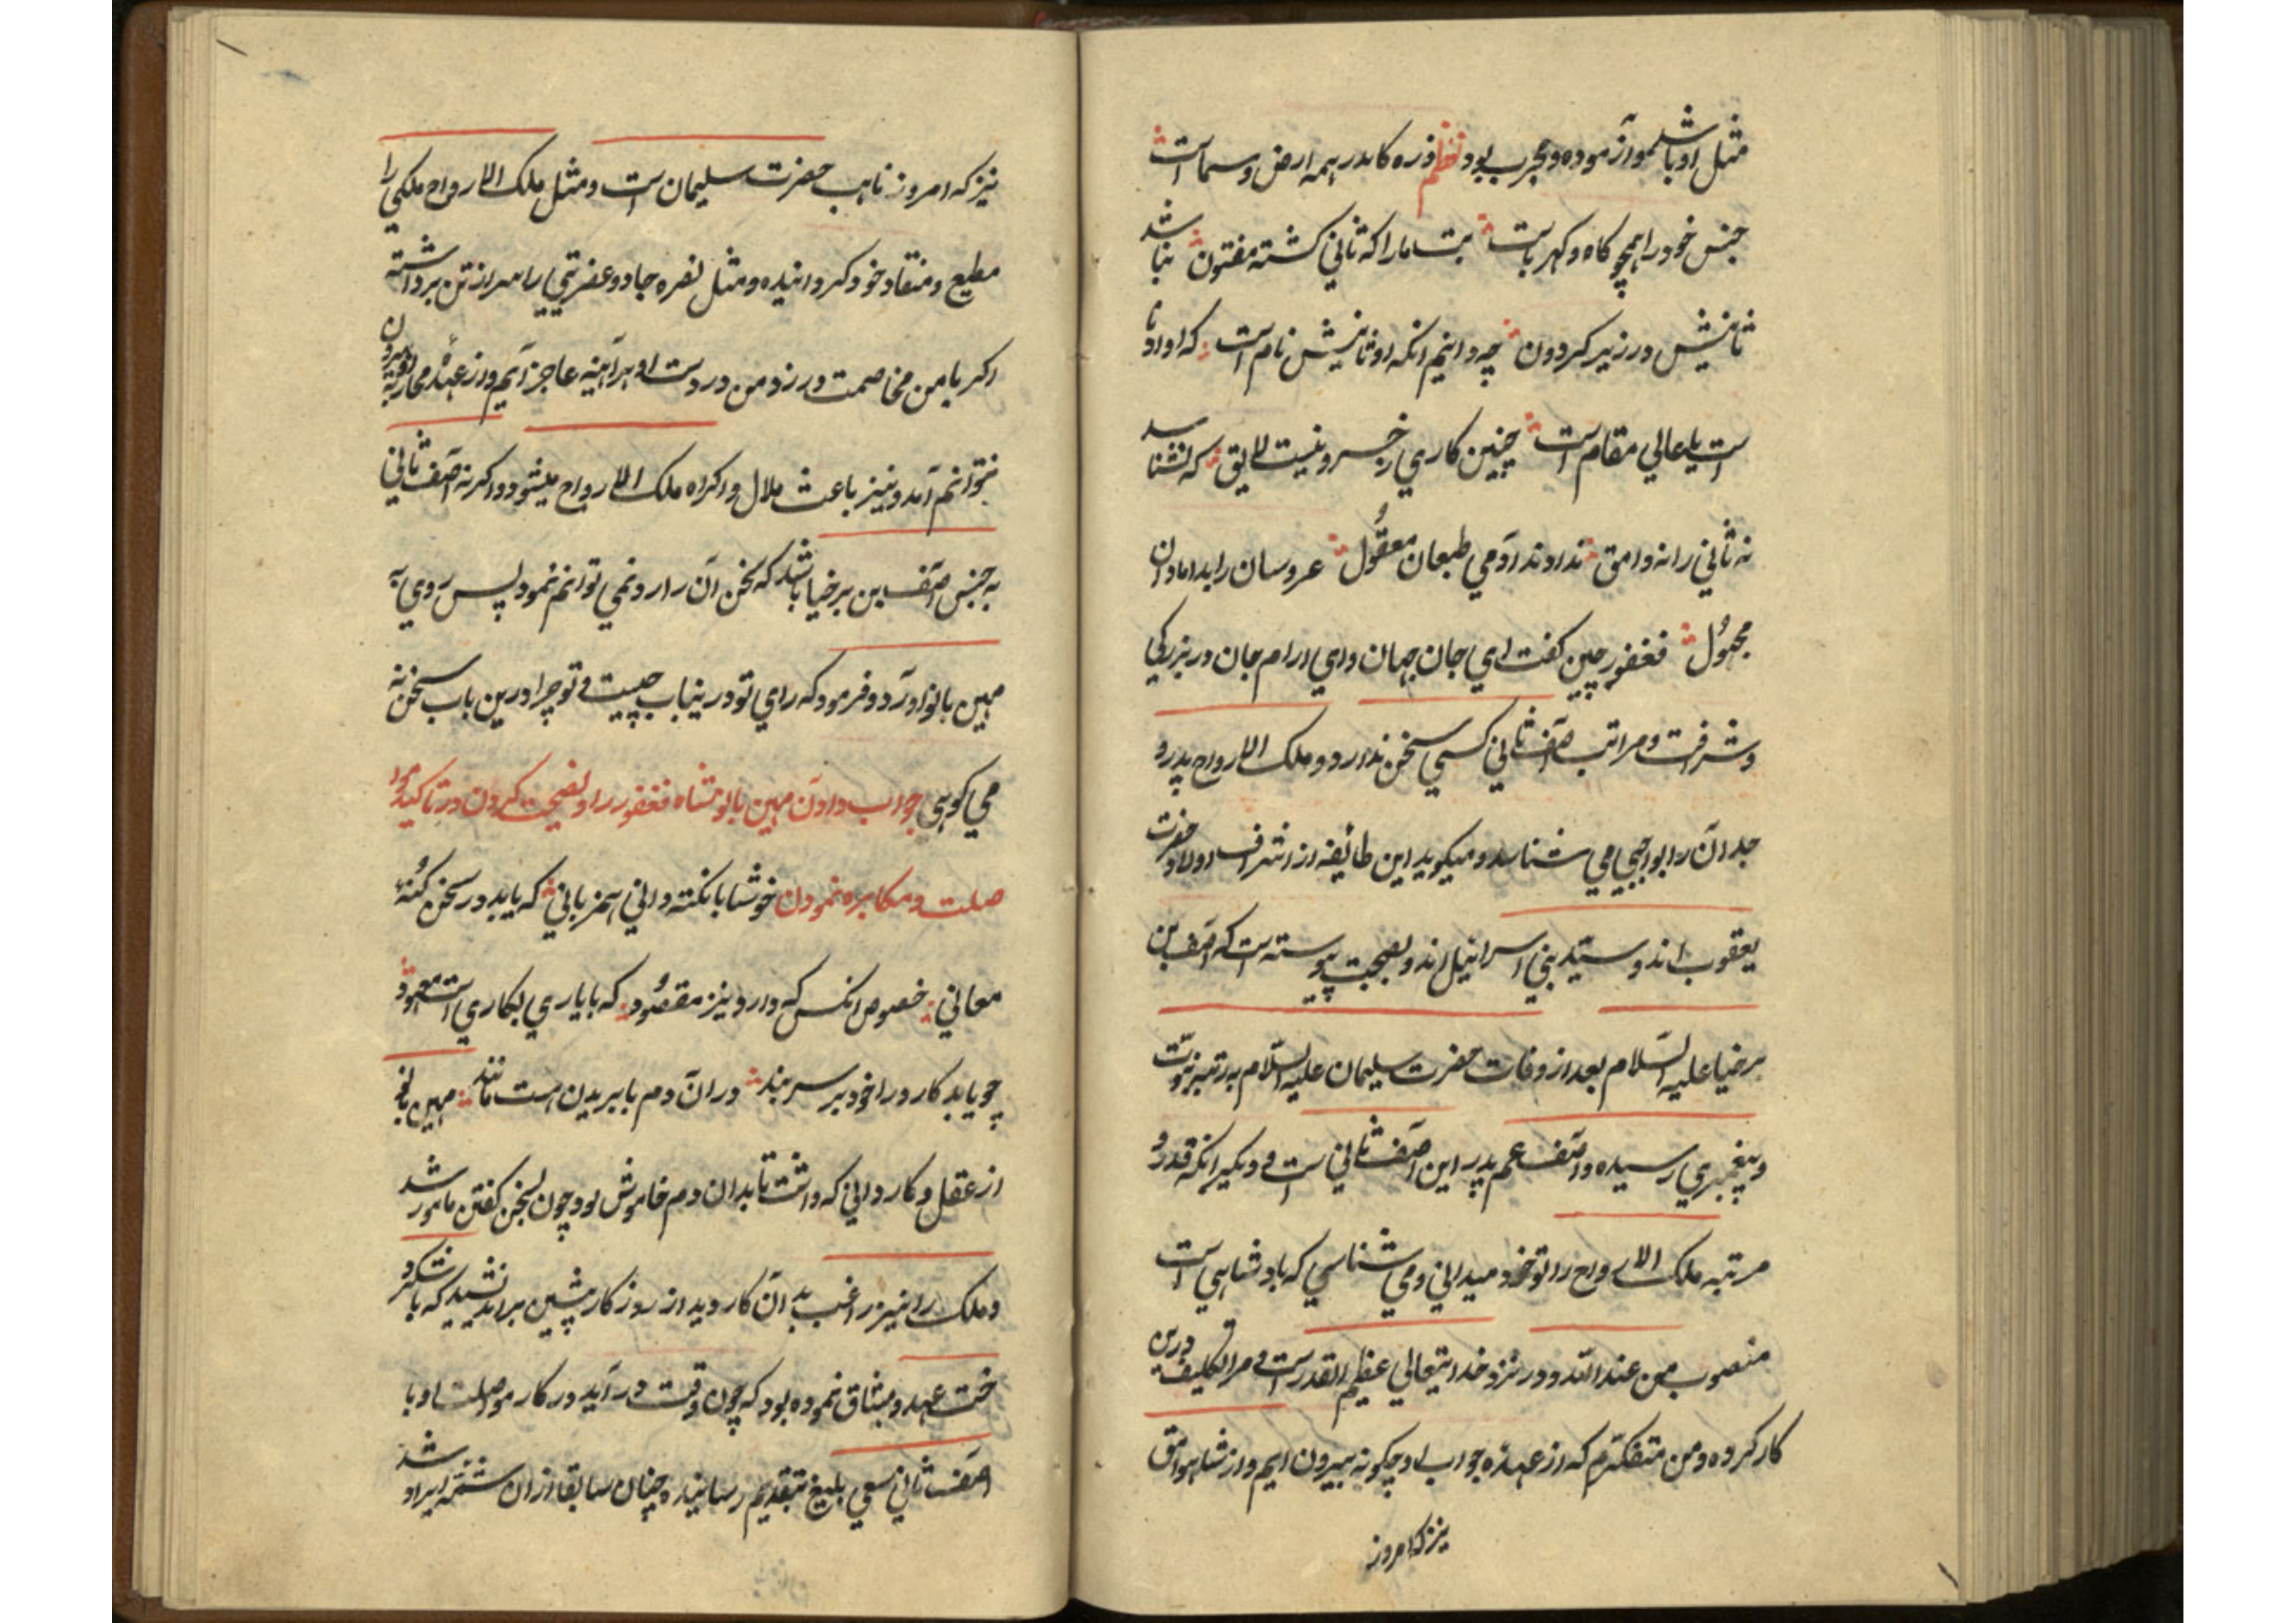 مثل او باشد و آزموده و مجرب بود نظم ذره کاندر همه ارض و سماست
جنس خود را همچو کاه و کهرباست بت ما را که ثانی کشته مفتون نباشد
ثانیش در زیر کردون چه دانیم انکه او ثانیش نام است که او
است یا عالی مقام است چنین کاری ز خسرو نیست لایق که نشناسد
نه ثانی را نه وامق نداند آدمی طبعان معقول عروسان را بدامادان
مجهول فغفور چین کفت ای جان جهان و ای ارام جان در بزرکی
و شرافت و مراتب آصف ثانی کسی سخن ندارد و ملک الارواح پدر و
جد آن را بواجبی می شناسد و میکوید این طائفه از اشراف اولاد حضرت
یعقوب اند و سید بنی اسرائیل اند و بصحت پیوسته است که آصف بن
برخیا علیه السلام بعد از وفات حضرت سلیمان علیه السلام به رتبه نبوت
و پیغمبری رسیده و آصف عم پدر این آصف ثانی است و دیکر انکه قدر و
مرتبه ملک الارواح را تو خود میدانی و می شناسی که بادشاهی است
منصوب من عند الله و در نزد خدایتعالی عظیم القدر است و مرا تکلیف درین
کار کرده و من متفکرم که از عهده جواب او چکونه بیرون ایم و از شاه وامق
نیز که امروز
نیز که امروز نایب حضرت سلیمان است و مثل ملک الارواح ملکی را
مطیع و منقاد خود کردانیده و مثل نصره جادو عفریتی را سر از تن برداشته
اکر با من مخاصمت ورزد من در دست او هرآینه عاجز آیم و از عهدهٔ محاربه او بیرون
نتوانم آمد و نیز باعث ملال و اکراه ملک الارواح میشود و اکر نه آصف ثانی
به جنس آصف بن برخیا باشد که سخن آن را رد نمی توانم نمود پس روی به
مهین بانو آورد و فرمود که رای تو در ینباب چیست و تو چرا درین باب سخن نه
می کوهی جواب دادن مهین بانو شاه فغفور را و نصیحت کردن در تاکید موا
صلت و مکابره نمودن خوشا با نکته دانی همزبانی که یابد در سخن کنه
معانی خصوص انکس که دارد نیز مقصود که با یاری بکاری است معهود
چو یابد کار و را خود بر سر بند در آن دم با بریدن هست مانند مهین بانو
از عقل و کاردانی که داشت تا بدان دم خاموش بود چون بسخن کفتن مامور شد
و ملک را نیز راغب بدان کار دید از روز کار پیشین براندیشید که با شکر
خت عهد و میثاق نموده بود که چون وقت در آید در کار مواصلت او با
آصف ثانی سعی بلیغ بتقدیم رسانید و چنان سابقا از ان شمه ایراد شد